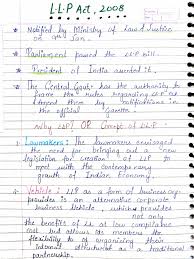 LLP Act, 2008
* Notified by Ministry of Law & Justice
on Jan
* Parliament passed the LLP Bill
* President of India assented it.
* The Central Govt has the authority to
frame the rules regarding
them by notifications in the
official gazette
Why LLP? OR Concept of LLP
* Lawmakers: The lawmakers envisaged the
need for bringing a new
legislation for creation of LLP to
meet with the contemporary
growth of Indian Economy.
* Vehicle: LLP as a form of business
is an alternative corporate
business vehicle, which provides
not only
the benefits of at low compliance
cost but allows its members
flexibility to of organizing their
internal structure as a traditional
partnership.